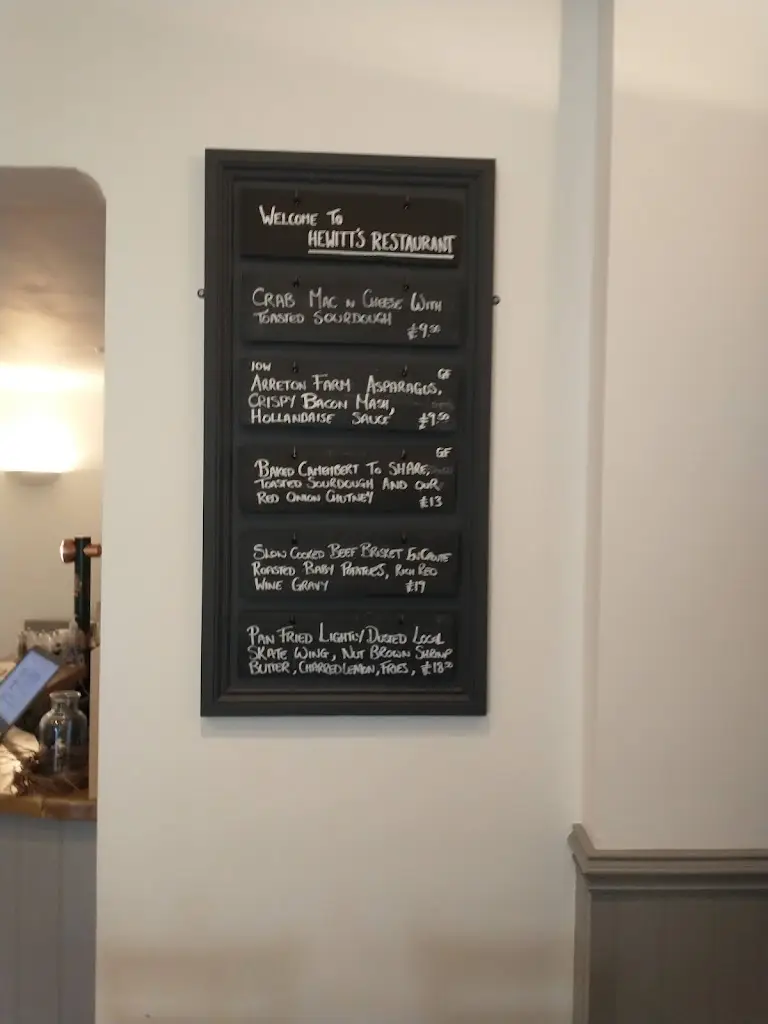 WELCOME TO
HEWITT'S RESTAURANT
CRAB MAC N CHEESE WITH
TOASTED SOURDOUGH
£9.50
IOW GF
ARRETON FARM ASPARAGUS,
CRISPY BACON MASH,
HOLLANDAISE SAUCE £9.50
GF
BAKED CAMEMBERT TO SHARE,
TOASTED SOURDOUGH AND OUR
RED ONION CHUTNEY £13
SLOW COOKED BEEF BRISKET EN CROUTE
ROASTED BABY POTATOES, RICH RED
WINE GRAVY £19
PAN FRIED LIGHTLY DUSTED LOCAL
SKATE WING, NUT BROWN SHRIMP
BUTTER, CHARRED LEMON, FRIES, £18.50